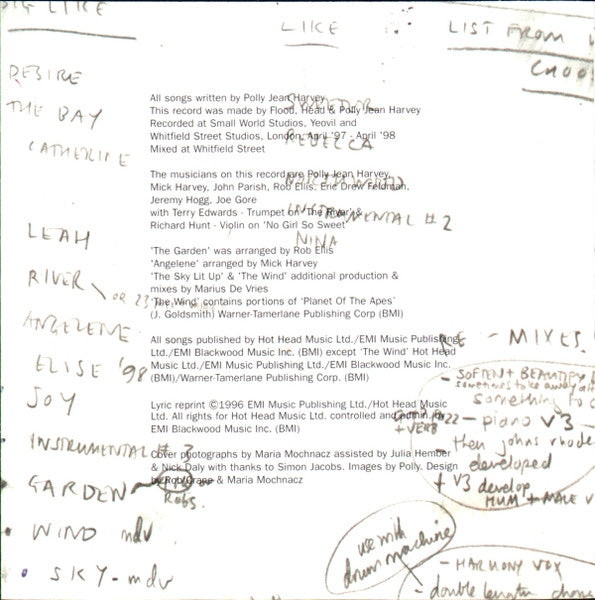 BIG LIKE
LIKE
LIST FROM
CHOO
DESIRE
THE BAY
CATHERINE
LEAH
RIVER
OR 23
ANGELENE
ELISE '98
JOY
INSTRUMENTAL # 3
GARDEN
Robs.
WIND mdv
SKY - mdv
REBECCA
INSTRUMENTAL # 2
NINA
All songs written by Polly Jean Harvey
This record was made by Flood, Head & Polly Jean Harvey
Recorded at Small World Studios, Yeovil and
Whitfield Street Studios, London, April '97 - April '98
Mixed at Whitfield Street
The musicians on this record are Polly Jean Harvey,
Mick Harvey, John Parish, Rob Ellis, Eric Drew Feldman,
Jeremy Hogg, Joe Gore
with Terry Edwards - Trumpet on 'The River' &
Richard Hunt - Violin on 'No Girl So Sweet'
'The Garden' was arranged by Rob Ellis
'Angelene' arranged by Mick Harvey
'The Sky Lit Up' & 'The Wind' additional production &
mixes by Marius De Vries
'The Wind' contains portions of 'Planet Of The Apes'
(J. Goldsmith) Warner-Tamerlane Publishing Corp (BMI)
All songs published by Hot Head Music Ltd./EMI Music Publishing
Ltd./EMI Blackwood Music Inc. (BMI) except 'The Wind' Hot Head
Music Ltd./EMI Music Publishing Ltd./EMI Blackwood Music Inc.
(BMI)/Warner-Tamerlane Publishing Corp. (BMI)
Lyric reprint ©1996 EMI Music Publishing Ltd./Hot Head Music
Ltd. All rights for Hot Head Music Ltd. controlled and admin. by
EMI Blackwood Music Inc. (BMI)
Cover photographs by Maria Mochnacz assisted by Julia Hember
& Nick Daly with thanks to Simon Jacobs. Images by Polly. Design
by Rob Crane & Maria Mochnacz
RE - MIXES
- SOFTEN + BEAUTIFY
sometimes take away
something to
+ VERB
- piano V3 -
then johns rhode
developed
+ V3 develop
HUM + MALE V
use with
drum machine
- HARMONY VOX
- double length